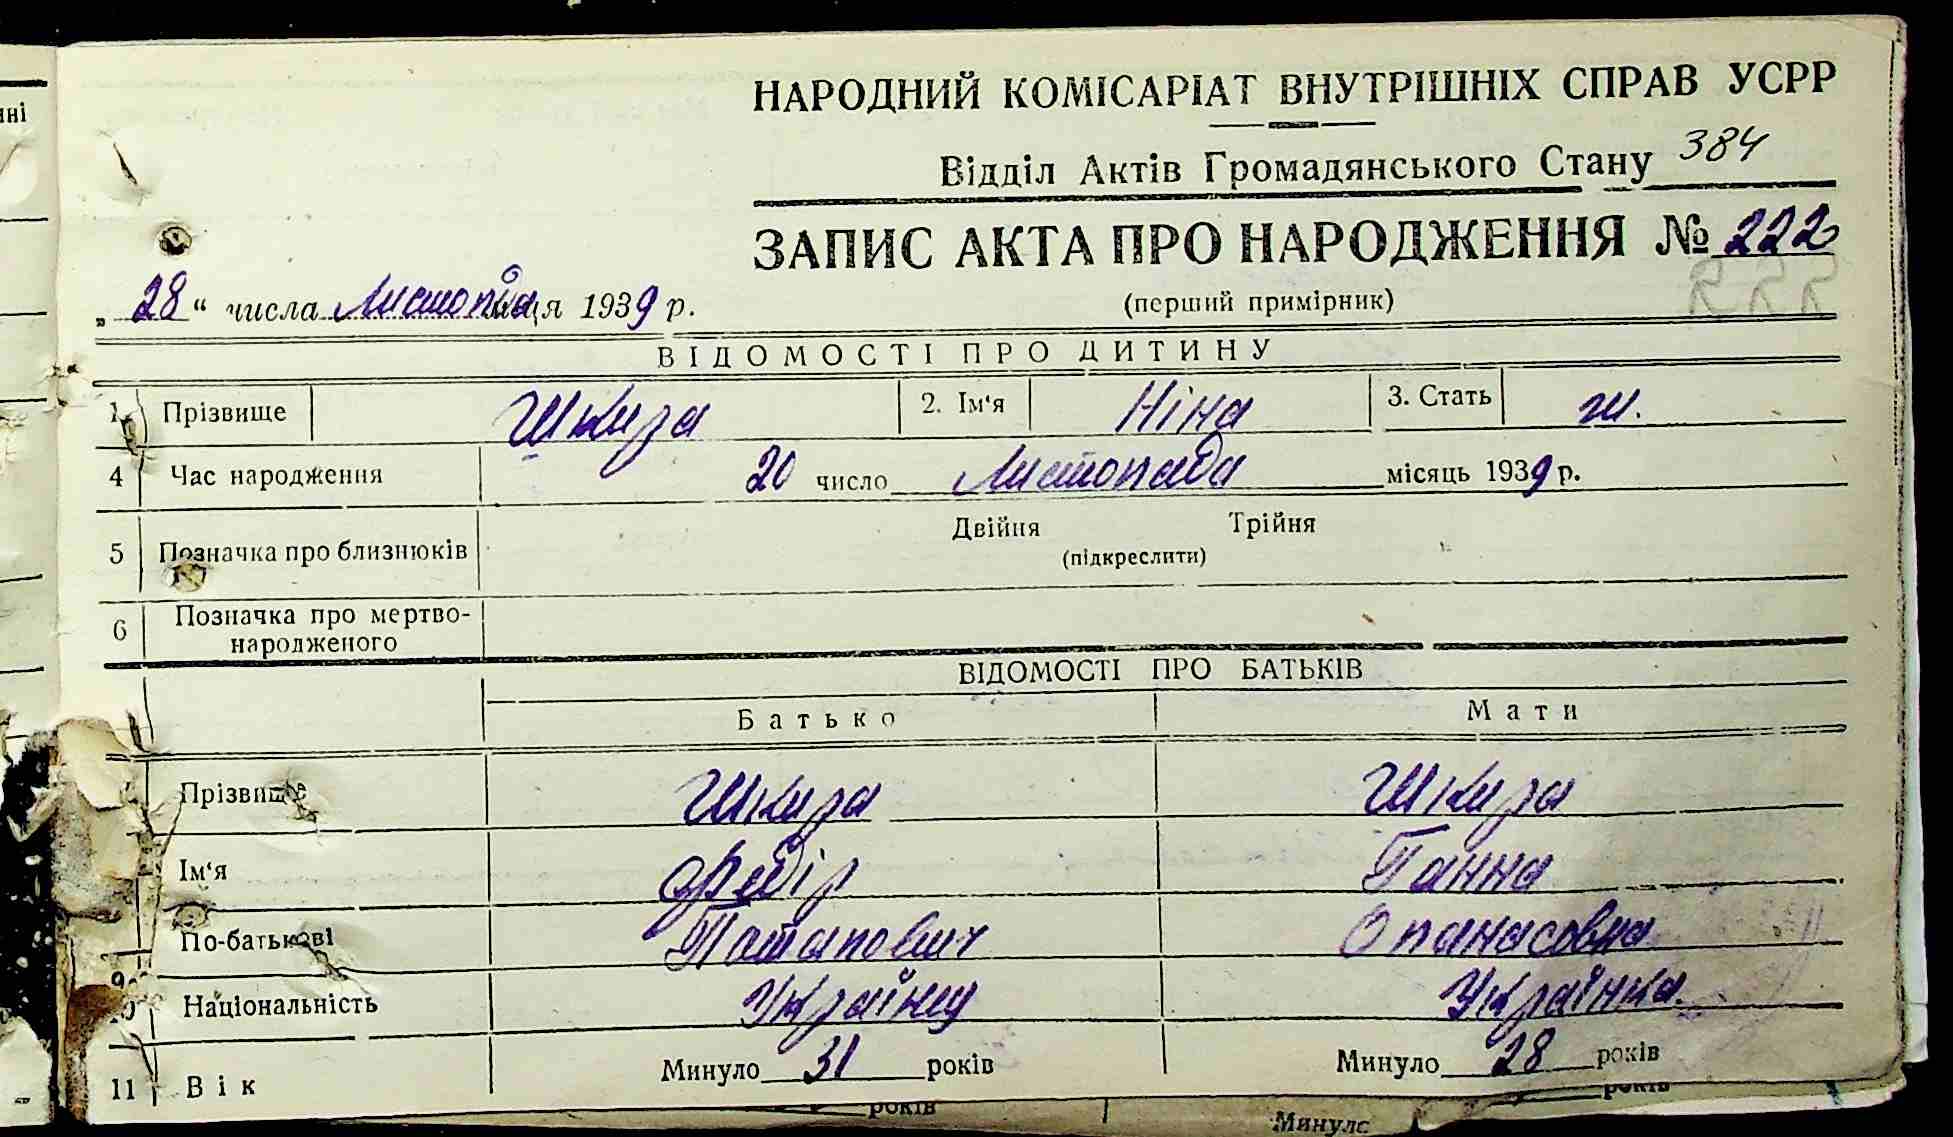 НАРОДНИЙ КОМІСАРІАТ ВНУТРІШНІХ СПРАВ УСРР
Відділ Актів Громадянського Стану 384
ЗАПИС АКТА ПРО НАРОДЖЕННЯ № 222
„28“ числа Листопада місяця 1939 р.
(перший примірник)
222
ВІДОМОСТІ ПРО ДИТИНУ
1 Прізвище Шкира 2. Ім'я Ніна 3. Стать ж.
4 Час народження 20 число Листопада місяць 1939 р.
5 Позначка про близнюків Двійня Трійня
(підкреслити)
6 Позначка про мертво-
народженого
ВІДОМОСТІ ПРО БАТЬКІВ
Батько Мати
Прізвище Шкира Шкира
Ім'я Федір Ганна
По-батькові Потапович Опанасовна
9
10 Національність Українец Українка
11 Вік Минуло 31 років Минуло 28 років
років Минуло років